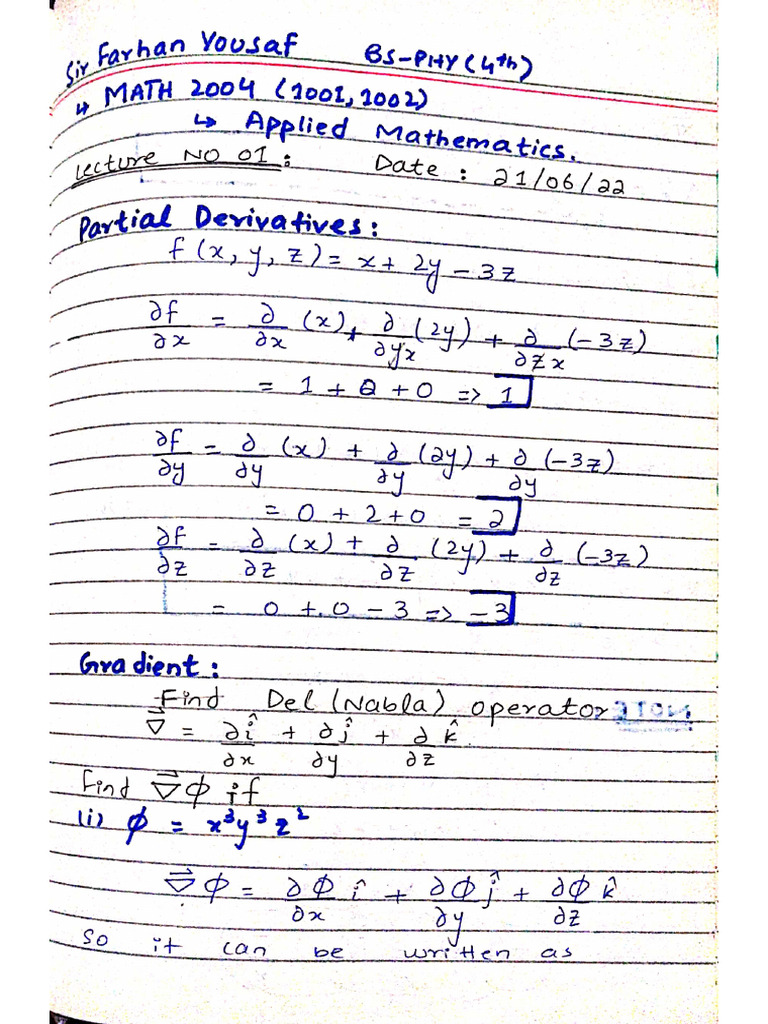 Sir Farhan Yousaf BS-PHY (4th)
↳ MATH 2004 (1001, 1002)
↳ Applied Mathematics.
Lecture NO 01: Date: 21/06/22
Partial Derivatives:
f(x, y, z) = x + 2y - 3z
∂f/∂x = ∂/∂x (x) + ∂/∂x (2y) + ∂/∂x (-3z)
= 1 + 0 + 0 => 1
∂f/∂y = ∂/∂y (x) + ∂/∂y (2y) + ∂/∂y (-3z)
= 0 + 2 + 0 = 2
∂f/∂z = ∂/∂z (x) + ∂/∂z (2y) + ∂/∂z (-3z)
= 0 + 0 - 3 => -3
Gradient:
Find Del (Nabla) operator
∇⃗ = ∂/∂x î + ∂/∂y ĵ + ∂/∂z k̂
Find ∇⃗ϕ if
(i) ϕ = x³y³z²
∇⃗ϕ = ∂ϕ/∂x î + ∂ϕ/∂y ĵ + ∂ϕ/∂z k̂
So it can be written as